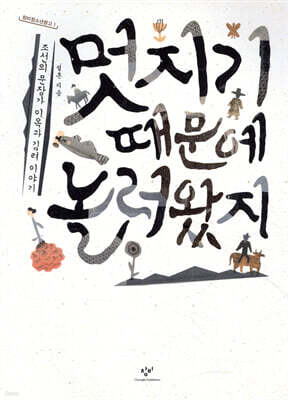 창비청소년문고 1
조선의 문장가 이옥과 김려 이야기
설흔 지음
멋지기
때문에
놀러왔지
창비
Changbi Publishers